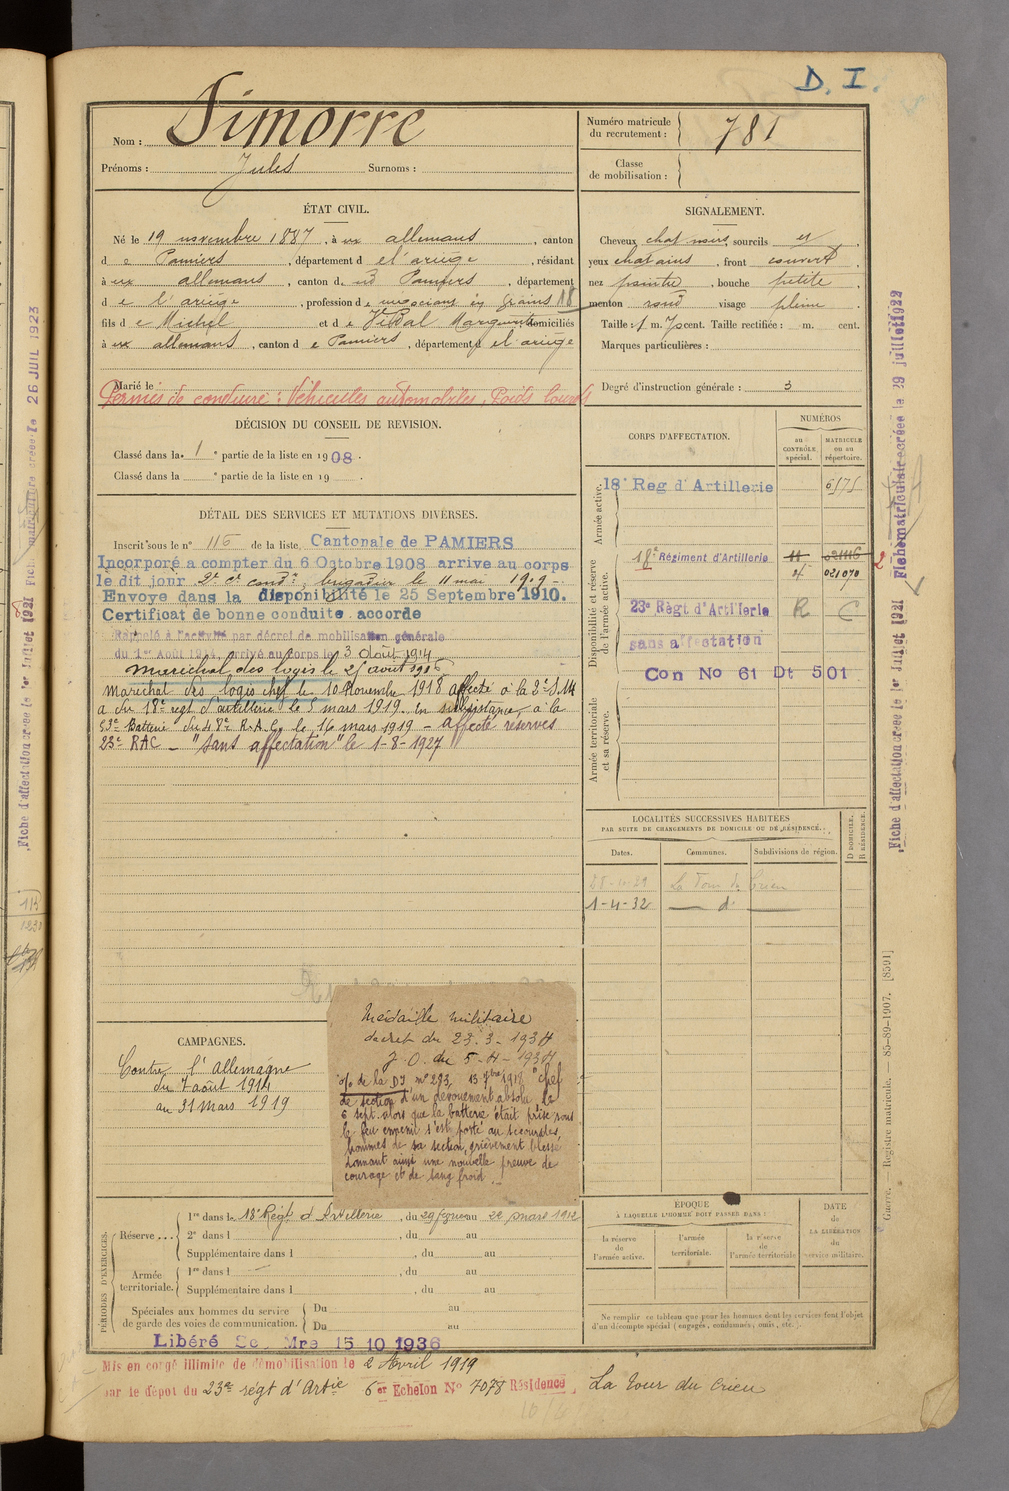 D. I.
Nom : Simorre
Prénoms : Jules Surnoms :
Numéro matricule
du recrutement : 781
Classe
de mobilisation :
ÉTAT CIVIL.
Né le 19 novembre 1887, à ux allemans, canton
d e Pamiers, département d e l'ariège, résidant
à ux allemans, canton d Pamiers, département
d e l'ariège, profession d e négociant en grains 18
fils d e Michel et d e Vidal Marguerite domiciliés
à ux allemans, canton d e Pamiers, département d el ariège
Marié le
Permis de conduire : Véhicules automobiles, Poids lourds
SIGNALEMENT.
Cheveux chat noirs, sourcils id
yeux chatains, front couvert
nez pointu, bouche petite
menton rond visage plein
Taille : 1 m. 70 cent. Taille rectifiée : m. cent.
Marques particulières :
Degré d'instruction générale : 3
DÉCISION DU CONSEIL DE REVISION.
Classé dans la 1e partie de la liste en 1908.
Classé dans la e partie de la liste en 19
DÉTAIL DES SERVICES ET MUTATIONS DIVERSES.
Inscrit sous le n° 116 de la liste Cantonale de PAMIERS
Incorporé a compter du 6 Octobre 1908 arrive au corps
le dit jour 2e Cr condr, brigadier le 11 mai 1909
Envoye dans la disponibilité le 25 Septembre 1910.
Certificat de bonne conduite accorde
Rappelé à l'activité par décret de mobilisation générale
du 1er Août 1914, arrivé au corps le 3 août 1914
Maréchal des logis le 25 août 1915
Maréchal des logis chef le 10 Novembre 1918 affecté à la 2e S.M
a du 18e regt d'artillerie le 5 mars 1919. En subsistance à la
53e Batterie du 48e R.A.C. le 16 mars 1919 - affecté réserves
23e RAC - "Sans affectation" le 1-8-1927
CORPS D'AFFECTATION.
NUMÉROS
au CONTRÔLE spécial.
MATRICULE ou au répertoire.
Armée active.
18e Reg d'Artillerie 6575
Disponibilité et réserve de l'armée active.
18e Régiment d'Artillerie 11 021116
021070
23e Règt d'Artillerie R C
sans affectation
Con No 61 Dt 501
Armée territoriale et sa réserve.
LOCALITÉS SUCCESSIVES HABITÉES
PAR SUITE DE CHANGEMENTS DE DOMICILE OU DE RÉSIDENCE.
Dates. Communes. Subdivisions de région. D DOMICILE. R RÉSIDENCE.
La Tour du Crieu
1-4-32 — d° —
CAMPAGNES.
Contre l'allemagne
du 7 août 1914
au 31 Mars 1919
Médaille militaire
décret du 23-3-1934
J.O. du 5-4-1934
o/o de la DI n° 293, 13 7bre 1918 "chef
de section d'un dévouement absolu le
6 sept. alors que la batterie était prise sous
le feu ennemi s'est porté au secours des
hommes de sa section, grièvement blessé
donnant ainsi une nouvelle preuve de
courage et de sang froid.
PÉRIODES D'EXERCICES.
Réserve ... 1re dans le 18e Régt d'Artillerie, du 29 février au 22 mars 1912
2e dans l , du au
Supplémentaire dans l , du au
Armée territoriale. 1re dans l , du au
Supplémentaire dans l , du au
Spéciales aux hommes du service Du au
de garde des voies de communication. Du au
ÉPOQUE
À LAQUELLE L'HOMME DOIT PASSER DANS :
la réserve de l'armée active.
l'armée territoriale.
la réserve de l'armée territoriale
DATE de LA LIBÉRATION du service militaire.
Ne remplir ce tableau que pour les hommes dont les services font l'objet
d'un décompte spécial (engagés, condamnés, omis, etc.).
Libéré Se Mre 15 10 1936
Mis en congé illimité de démobilisation le 2 Avril 1919
par le dépôt du 23e régt d'Artie 6e Echelon No 7078 Résidence, La Tour du Crieu
Fiche d'affectation créée le 1er Juillet 1921 Fiche matriculaire créée le 29 juillet 1922
Guerre. — Registre matricule. — 85-89-1907. [8591]
Fiche d'affectation créée le 1er Juillet 1921 Fiche matriculaire créée le 26 JUIL 1923